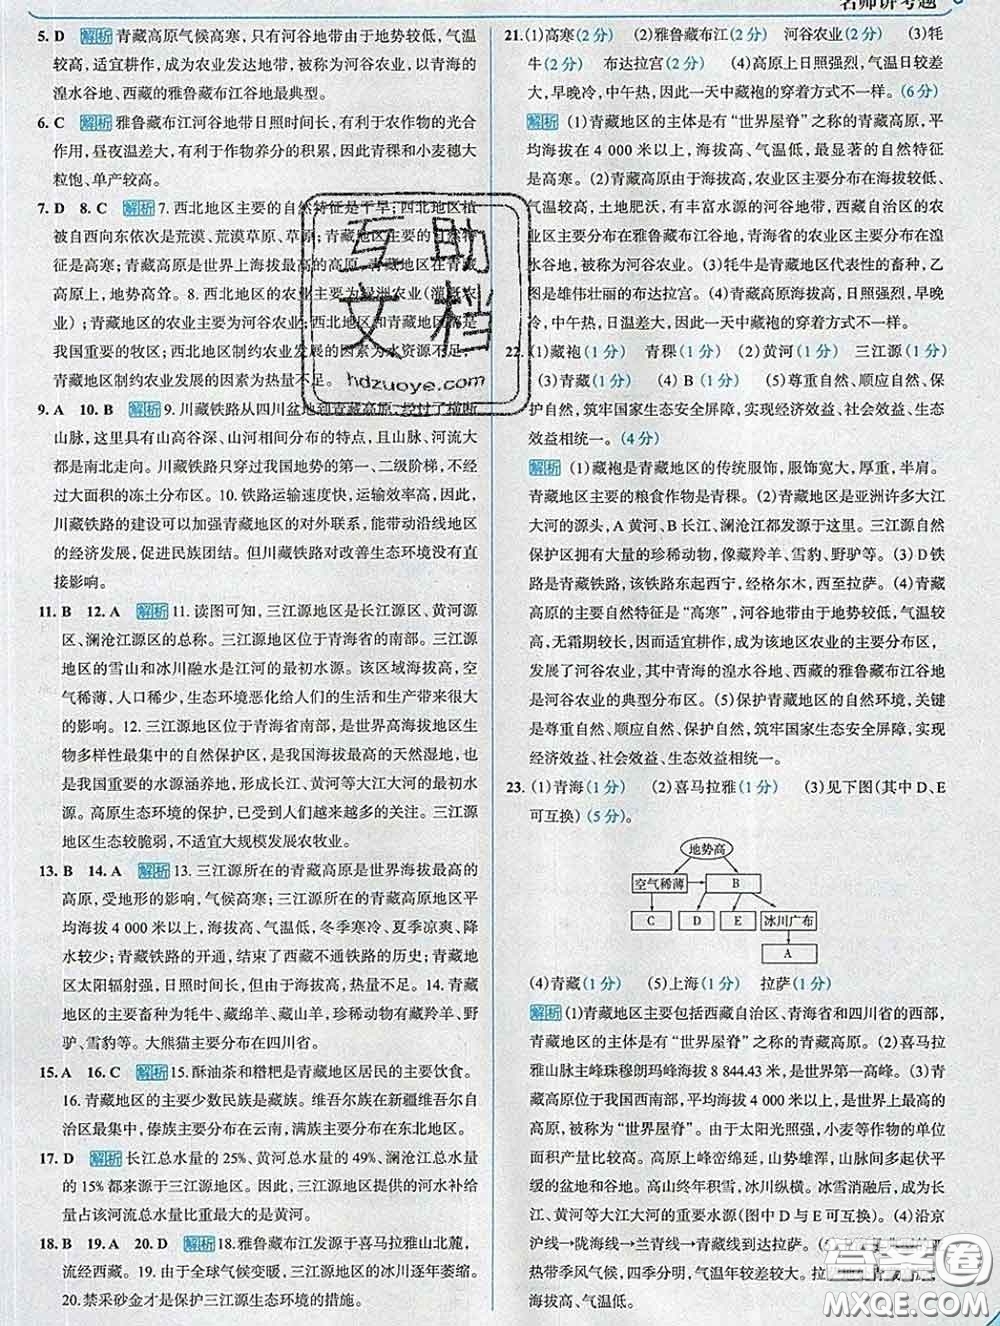 名师讲考题
5. D 解析 青藏高原气候高寒,只有河谷地带由于地势较低,气温
较高,适宜耕作,成为农业发达地带,被称为河谷农业,以青海的
湟水谷地、西藏的雅鲁藏布江谷地最典型。
6. C 解析 雅鲁藏布江河谷地带日照时间长,有利于农作物的光合
作用,昼夜温差大,有利于作物养分的积累,因此青稞和小麦穗大
粒饱、单产较高。
7. D 8. C 解析 7. 西北地区主要的自然特征是干旱;西北地区植
被自西向东依次是荒漠、荒漠草原、草原;青藏地区主要的自然特
征是高寒;青藏高原是世界上海拔最高的高原,青藏地区在青藏
高原上,地势高耸。8. 西北地区的农业主要为绿洲农业(灌溉农
业);青藏地区的农业主要为河谷农业;西北地区和青藏地区都是
我国重要的牧区;西北地区制约农业发展的因素为水资源不足,
青藏地区制约农业发展的因素为热量不足。
9. A 10. B 解析 9. 川藏铁路从四川盆地到青藏高原,经过了横断
山脉,这里具有山高谷深、山河相间分布的特点,且山脉、河流大
都是南北走向。川藏铁路只穿过我国地势的第一、二级阶梯,不经
过大面积的冻土分布区。10. 铁路运输速度快,运输效率高,因此,
川藏铁路的建设可以加强青藏地区的对外联系,能带动沿线地区
的经济发展,促进民族团结。但川藏铁路对改善生态环境没有直
接影响。
11. B 12. A 解析 11. 读图可知,三江源地区是长江源区、黄河源
区、澜沧江源区的总称。三江源地区位于青海省的南部。三江源
地区的雪山和冰川融水是江河的最初水源。该区域海拔高,空
气稀薄,人口稀少,生态环境恶化给人们的生活和生产带来很大
的影响。12. 三江源地区位于青海省南部,是世界高海拔地区生
物多样性最集中的自然保护区,是我国海拔最高的天然湿地,也
是我国重要的水源涵养地,形成长江、黄河等大江大河的最初水
源。高原生态环境的保护,已受到人们越来越多的关注。三江源
地区生态较脆弱,不适宜大规模发展农牧业。
13. B 14. A 解析 13. 三江源所在的青藏高原是世界海拔最高的
高原,受地形的影响,气候高寒。三江源所在的青藏高原地区平
均海拔 4 000 米以上,海拔高、气温低,冬季寒冷、夏季凉爽、降
水较少;青藏铁路的开通,结束了西藏不通铁路的历史;青藏地
区太阳辐射强,日照时间长,但由于海拔高,热量不足。14. 青藏
地区的主要畜种为牦牛、藏绵羊、藏山羊,珍稀动物有藏羚羊、野
驴、雪豹等。大熊猫主要分布在四川省。
15. A 16. C 解析 15. 酥油茶和糌粑是青藏地区居民的主要饮食。
16. 青藏地区的主要少数民族是藏族。维吾尔族在新疆维吾尔自
治区最集中,傣族主要分布在云南省,朝鲜族主要分布在东北地区。
17. D 解析 长江总水量的 25%、黄河总水量的 49%、澜沧江总水量
的 15%都来自于三江源地区。因此,三江源地区提供的河水补给
量占该河流总水量比重最大的是黄河。
18. B 19. A 20. D 解析 18. 雅鲁藏布江发源于喜马拉雅山北麓,
流经西藏。19. 由于全球气候变暖,三江源的冰川逐年萎缩。
20. 禁采砂金才是保护三江源生态环境的措施。
21. (1)高寒(2 分) (2)雅鲁藏布江(2 分) 河谷农业(2 分) (3)牦
牛(2 分) 布达拉宫(2 分) (4)高原上日照强烈,气温日较差
大,早晚冷,中午热,因此一天中藏袍的穿着方式不一样。(6 分)
解析 (1)青藏地区的主体是有“世界屋脊”之称的青藏高原,平
均海拔在 4 000 米以上,海拔高、气温低,最显著的自然特征
是高寒。(2)青藏高原由于海拔高,农业区主要分布在海拔较低、
气温较高,土地肥沃,有丰富水源的河谷地带,西藏自治区的农
业区主要分布在雅鲁藏布江谷地,青海省的农业区主要分布在湟
水谷地,被称为河谷农业。(3)牦牛是青藏地区代表性的畜种,乙
图是雄伟壮丽的布达拉宫。(4)青藏高原海拔高,日照强烈,早晚
冷,中午热,日温差大,因此一天中藏袍的穿着方式不一样。
22. (1)藏袍(1 分) 青稞(1 分) (2)黄河(1 分) 三江源(1 分)
(3)青藏(1 分) (4) B (1 分) (5)尊重自然、顺应自然、保
护自然,筑牢国家生态安全屏障,实现经济效益、社会效益、生态
效益相统一。(4 分)
解析 (1)藏袍是青藏地区的传统服饰,服饰宽大,厚重,半肩。
青藏地区主要的粮食作物是青稞。(2)青藏地区是亚洲许多大江
大河的源头,A 黄河、B 长江、澜沧江都发源于这里。三江源自然
保护区拥有大量的珍稀动物,像藏羚羊、雪豹、野驴等。(3)D 铁
路是青藏铁路,该铁路东起西宁,经格尔木,西至拉萨。(4)青藏
高原的主要自然特征是“高寒”,河谷地带由于地势较低,气温较
高,无霜期较长,因而适宜耕作,成为该地区农业的主要分布区,
发展了河谷农业,其中青海的湟水谷地、西藏的雅鲁藏布江谷地,
是河谷农业的典型分布区。(5)保护青藏地区的自然环境,关键
是尊重自然、顺应自然、保护自然,筑牢国家生态安全屏障,实现
经济效益、社会效益、生态效益相统一。
23. (1)青海(1 分) (2)喜马拉雅(1 分) (3)见下图(其中 D、E
可互换)(5 分)。
地势高
空气稀薄 B
C D E 冰川广布
A
(4)青藏(1 分) (5)上海(1 分) 拉萨(1 分)
解析 (1)青藏地区主要包括西藏自治区、青海省和四川省的西部,
青藏地区的主体是有“世界屋脊”之称的青藏高原。(2)喜马拉
雅山脉主峰珠穆朗玛峰海拔 8 844.43 米,是世界第一高峰。(3)
青藏高原位于我国西南部,平均海拔 4 000 米以上,是世界最高的
高原,被称为“世界屋脊”。由于太阳光照强,小麦等作物的单位
面积产量比较高。高原上峰峦绵延,山势雄浑,山脉之间分布着平
缓的盆地和谷地。高山终年积雪,冰川纵横。冰雪消融后,成为长
江、黄河等大江大河的重要水源(图中 D 与 E 可互换)。(4)沿京
沪线→陇海线→兰青线→青藏线到达拉萨。(5)
带季风气候,四季分明,气温年较差较大。拉
海拔高、气温低。
互助
文档
hdzuoye.com
答案圈
MXQE.COM